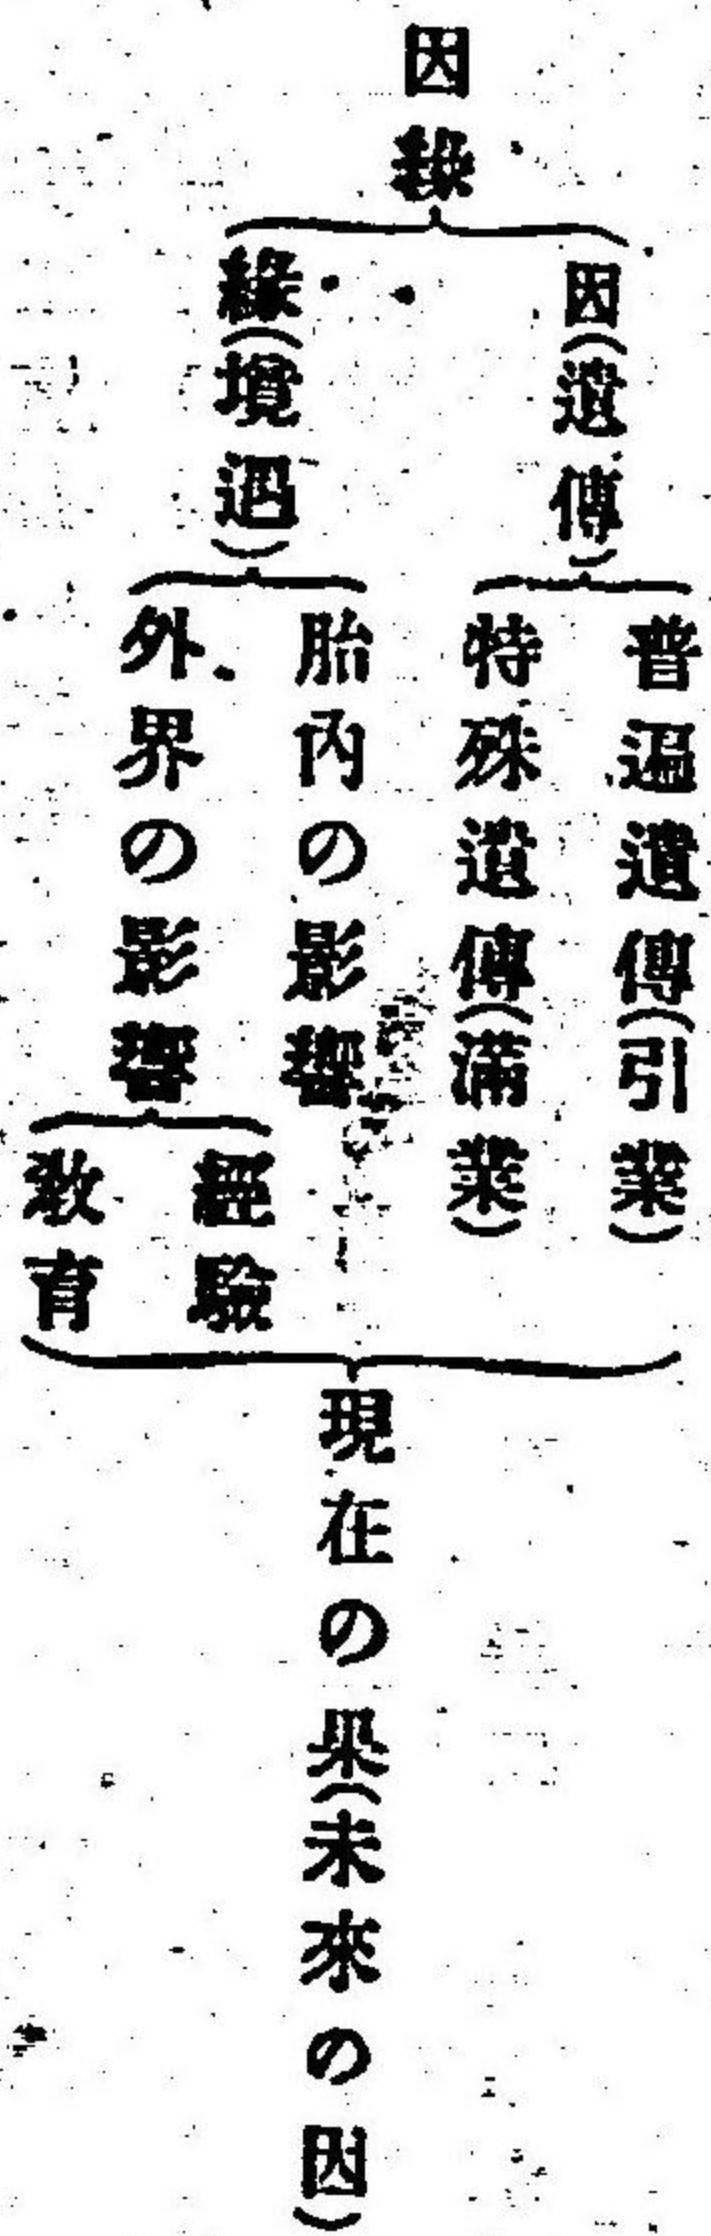 因緣
因(遺傳)
普遍遺傳(引業)
特殊遺傳(滿業)
緣(境遇)
胎內の影響
外界の影響
經驗
敎育
現在の果(未來の因)